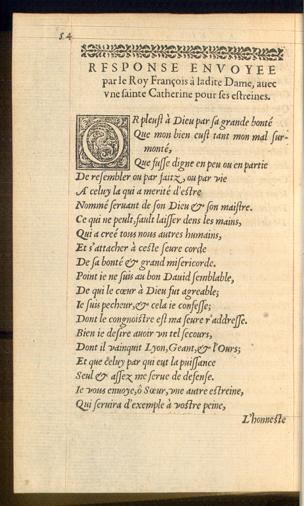 54
RESPONSE ENVOYEE
par le Roy François à ladite Dame, auec
vne sainte Catherine pour ses estreines.
OR pleust à Dieu par sa grande bonté
Que mon bien eust tant mon mal sur-
monté,
Que fusse digne en peu ou en partie
De resembler ou par faitz, ou par vie
A celuy la qui a merité d'estre
Nommé seruant de son Dieu & son maistre.
Ce qui ne peult, fault laisser dens les mains,
Qui a creé tous nous autres humains,
Et s'attacher à ceste seure corde
De sa bonté & grand misericorde.
Point ie ne suis au bon Dauid semblable,
De qui le cœur à Dieu fut agreable;
Ie suis pecheur, & cela ie confesse;
Dont le congnoistre est ma seure r'addresse.
Bien ie desire auoir vn tel secours,
Dont il vainquit Lyon, Geant, & l'Ours;
Et que celuy par qui eut la puissance
Seul & assez me serue de defense.
Ie vous enuoye, ô Sœur, vne autre estreine,
Qui seruira d'exemple à vostre peine,
L'honneste